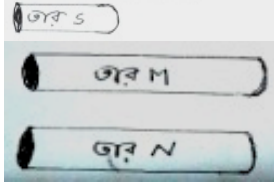 তার S
তার M
তার N